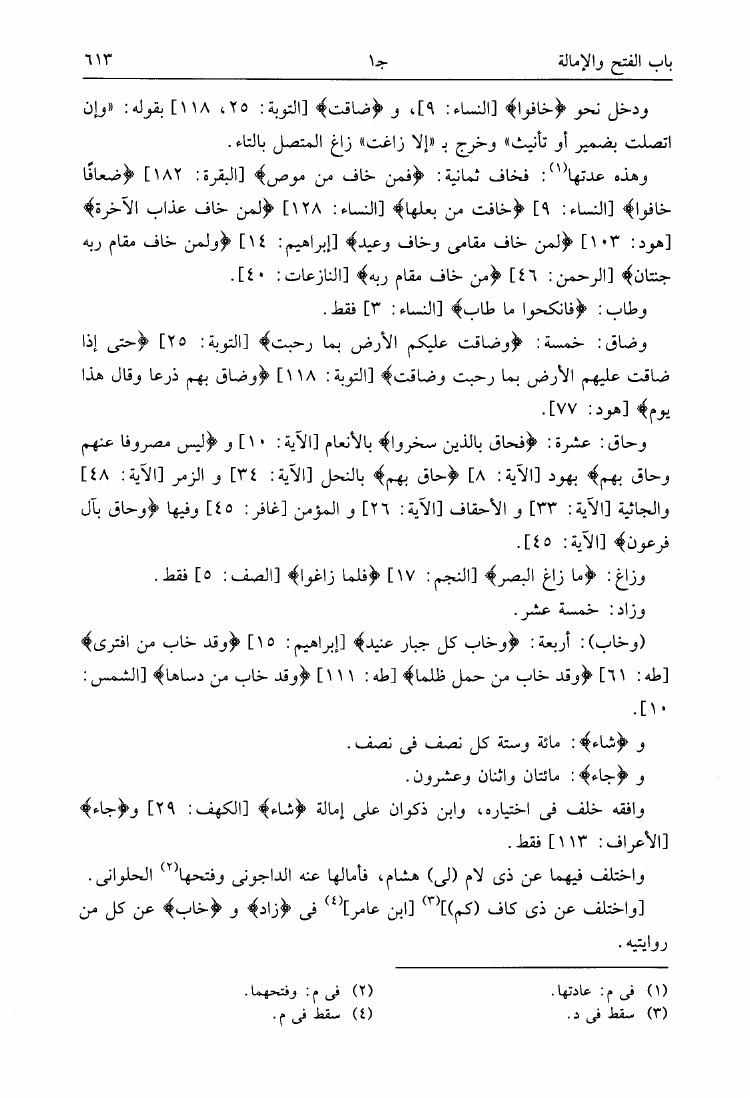 باب الفتح والإمالة ج١ ٦١٣
ودخل نحو ﴿خافوا﴾ [النساء: ٩]، و ﴿ضاقت﴾ [التوبة: ٢٥، ١١٨] بقوله: «وإن
اتصلت بضمير أو تأنيث» وخرج بـ «إلا زاغت» زاغ المتصل بالتاء.
وهذه عدتها(١): فخاف ثمانية: ﴿فمن خاف من موص﴾ [البقرة: ١٨٢] ﴿ضعافًا
خافوا﴾ [النساء: ٩] ﴿خافت من بعلها﴾ [النساء: ١٢٨] ﴿لمن خاف عذاب الآخرة﴾
[هود: ١٠٣] ﴿لمن خاف مقامى وخاف وعيد﴾ [إبراهيم: ١٤] ﴿ولمن خاف مقام ربه
جنتان﴾ [الرحمن: ٤٦] ﴿من خاف مقام ربه﴾ [النازعات: ٤٠].
وطاب: ﴿فانكحوا ما طاب﴾ [النساء: ٣] فقط.
وضاق: خمسة: ﴿وضاقت عليكم الأرض بما رحبت﴾ [التوبة: ٢٥] ﴿حتى إذا
ضاقت عليهم الأرض بما رحبت وضاقت﴾ [التوبة: ١١٨] ﴿وضاق بهم ذرعا وقال هذا
يوم﴾ [هود: ٧٧].
وحاق: عشرة: ﴿فحاق بالذين سخروا﴾ بالأنعام [الآية: ١٠] و ﴿ليس مصروفا عنهم
وحاق بهم﴾ بهود [الآية: ٨] ﴿حاق بهم﴾ بالنحل [الآية: ٣٤] و الزمر [الآية: ٤٨]
والجاثية [الآية: ٣٣] و الأحقاف [الآية: ٢٦] و المؤمن [غافر: ٤٥] وفيها ﴿وحاق بآل
فرعون﴾ [الآية: ٤٥].
وزاغ: ﴿ما زاغ البصر﴾ [النجم: ١٧] ﴿فلما زاغوا﴾ [الصف: ٥] فقط.
وزاد: خمسة عشر.
(وخاب): أربعة: ﴿وخاب كل جبار عنيد﴾ [إبراهيم: ١٥] ﴿وقد خاب من افترى﴾
[طه: ٦١] ﴿وقد خاب من حمل ظلما﴾ [طه: ١١١] ﴿وقد خاب من دساها﴾ [الشمس:
١٠].
و ﴿شاء﴾: مائة وستة كل نصف فى نصف.
و ﴿جاء﴾: مائتان واثنان وعشرون.
وافقه خلف فى اختياره، وابن ذكوان على إمالة ﴿شاء﴾ [الكهف: ٢٩] و﴿جاء﴾
[الأعراف: ١١٣] فقط.
واختلف فيهما عن ذى لام (لى) هشام، فأمالها عنه الداجونى وفتحها(٢) الحلوانى.
[واختلف عن ذى كاف (كم)](٣) [ابن عامر](٤) فى ﴿زاد﴾ و ﴿خاب﴾ عن كل من
روايتيه.
(١) فى م: عادتها. (٢) فى م: وفتحهما.
(٣) سقط فى د. (٤) سقط فى م.